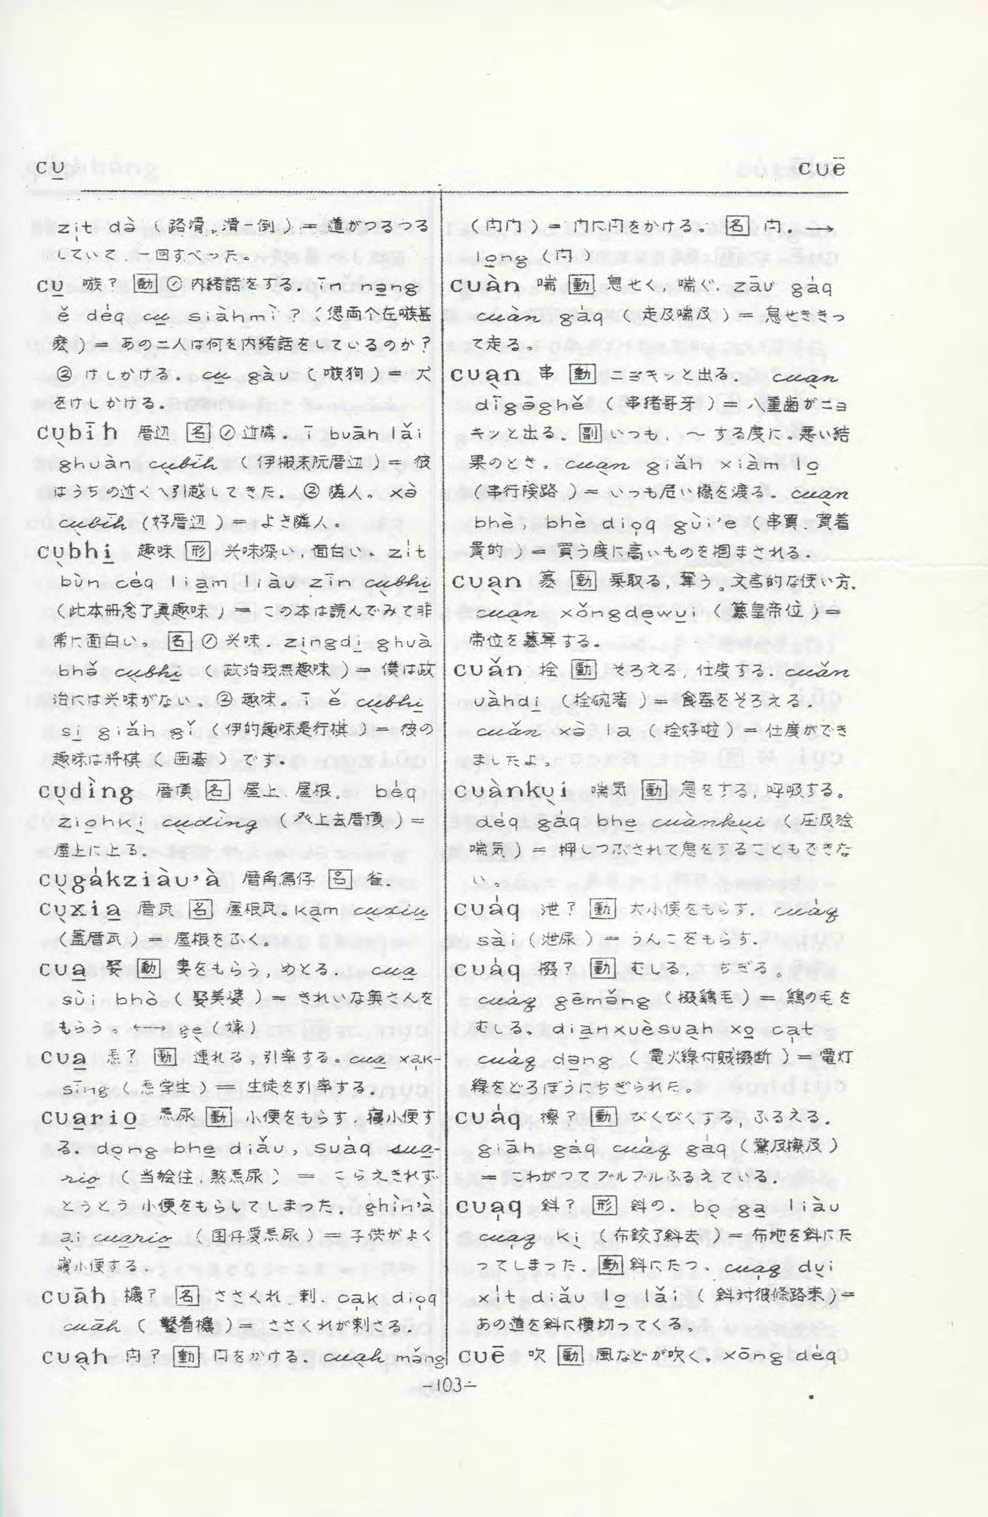 cu̱
cuē
zi̖t dà (路滑,滑一倒)=道がつるつる
していて 一回すべった。
cu̱ 嗾? 動 ① 内緒話をする. īn na̖ng
ě déq cu̱ siàhmì ? (偲両个在嗾甚
麽)= あの二人は何を内緒話をしているのか?
② けしかける. cu̱ gàu (嗾狗)= 犬
をけしかける.
cu̖bīh 厝辺 名 ① 近隣. ī buāh lǎi
ghuàn cu̖bīh (伊搬来阮厝辺)= 彼
はうちの近くへ引越してきた. ② 隣人. xò
cu̖bīh (好厝辺)= よき隣人.
cu̖bhi̱ 趣味 形 興味深い,面白い. zi̍t
bùn céq lia̱m liàu zīn cu̖bhi̱
(此本冊念了真趣味)= この本は読んでみて非
常に面白い. 名 ① 興味. zi̖ngdi̱ ghuà
bhǒ cu̖bhi̱ (政治我無趣味)= 僕は政
治には興味がない. ② 趣味. ī ě cu̖bhi̱
si̱ giǎh gǐ (伊的趣味是行棋)= 彼の
趣味は将棋(囲碁)です.
cu̖dìng 厝頂 名 屋上,屋根. béq
zio̱hki̖ cu̖dìng (𬦰上去厝頂)=
屋上に上る.
cu̖gákziàu'à 厝角鳥仔 名 雀.
cu̖xia̱ 厝瓦 名 屋根瓦. ka̖m cu̖xia̱
(蓋厝瓦)= 屋根をふく.
cua̱ 娶 動 妻をもらう,めとる. cua̱
sùi bhò (娶美婆)= きれいな奥さんを
もらう. ←→ ge̱ (嫁)
cua̱ 𤆬? 動 連れる,引率する. cua̱ xa̍k-
sīng (𤆬学生)= 生徒を引率する.
cua̱rio̱ 𤆬尿 動 小便をもらす,寝小便す
る. do̖ng bhe̱ diǎu, suàq cua̱-
rio̱ (当𣍐住,煞𤆬尿)= こらえきれず
とうとう小便をもらしてしまった. ghìn'à
a̖i cua̱rio̱ (囡仔愛𤆬尿)= 子供がよく
寝小便する.
cuāh 欉? 名 ささくれ,刺. ca̍k dio̍q
cuāh (鑿着欉)= ささくれが刺さる.
cua̖h 閂? 動 閂をかける. cua̖h mǎng
(閂門)= 門に閂をかける. 名 閂. →
lo̱ng (閂)
cuàn 喘 動 息せく,喘ぐ. zàu gáq
cuàn gáq (走及喘及)= 息せききっ
て走る.
cua̖n 串 動 ニョキッと出る. cua̖n
dīgāghě (串猪哥牙)= 八重歯がニョ
キッと出る. 副 いつも,〜する度に.悪い結
果のとき. cua̖n giǎh xiàm lo̱
(串行険路)= いつも危い橋を渡る. cua̖n
bhè, bhè dio̍q gùi'e (串買,買着
貴的)= 買う度に高いものを掴まされる.
cua̖n 簒 動 乗取る,奪う.文言的な使い方.
cua̖n xǒngde̖wu̱i (簒皇帝位)=
帝位を簒奪する.
cuǎn 拴 動 そろえる,仕度する. cuǎn
uàhdi̱ (拴碗箸)= 食器をそろえる.
cuǎn xò la (拴好啦)= 仕度ができ
ましたよ.
cuànku̖i 喘気 動 息をする,呼吸する.
déq gáq bhe̱ cuànku̖i (圧及𣍐
喘気)= 押しつぶされて息をすることもできな
い.
cuáq 泄? 動 大小便をもらす. cuáq
sài (泄屎)= うんこをもらす.
cuáq 掇? 動 むしる,ちぎる.
cuáq gēmǎng (掇鶏毛)= 鶏の毛を
むしる. dia̱nxuèsua̖h xo̱ ca̍t
cuáq da̱ng (電火線付賊掇断)= 電灯
線をどろぼうにちぎられた.
cuáq 擦? 動 びくびくする,ふるえる.
giāh gáq cuáq gáq (驚及擦及)
= こわがってブルブルふるえている.
cua̍q 斜? 形 斜の. bo̖ ga̱ liàu
cua̍q ki̖ (布鉸了斜去)= 布地を斜にた
ってしまった. 動 斜にたつ. cua̍q du̖i
xi̍t diǎu lo̱ lǎi (斜対彼條路来)=
あの道を斜に横切ってくる.
cuē 吹 動 風などが吹く. xōng déq
-103-